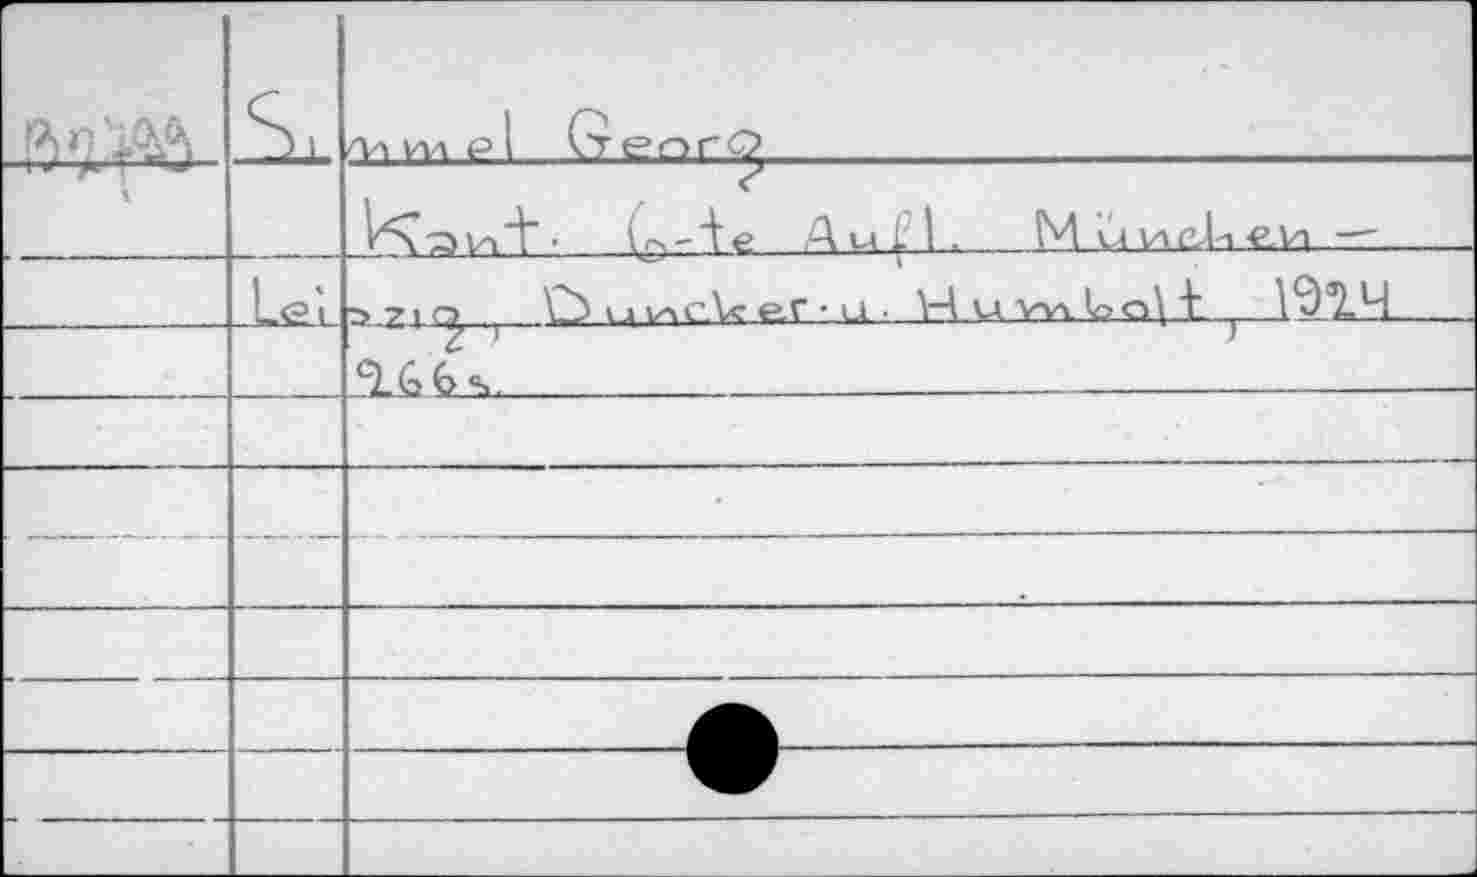 Simmel Georg
Kant. 6-te Aufl. München —
Leipzig, Duncker u. Humbolt, 1924
266 s.